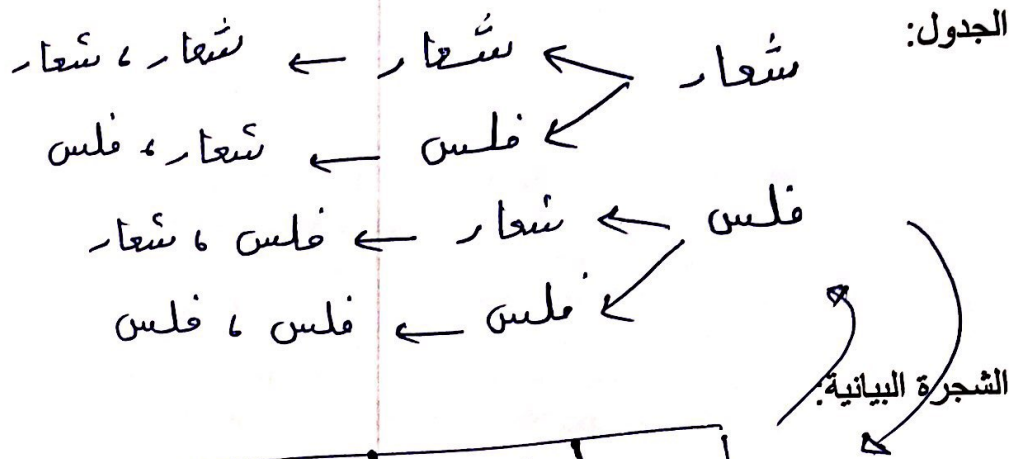 الجدول:
شعار ← شعار ← شعار ، شعار
فلس ← شعار ، فلس
فلس ← شعار ← فلس ، شعار
فلس ← فلس ، فلس
الشجرة البيانية: